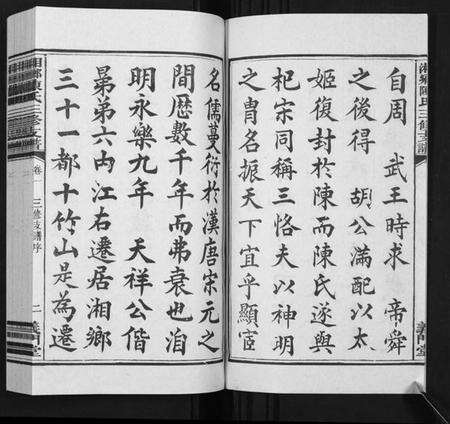 湘鄉陳氏三修支譜
義門堂
自周　武王時求　帝舜
之後得　胡公滿配以太
姬復封於陳而陳氏遂與
杞宋同稱三恪夫以神明
之胄名振天下宜乎顯宦
名儒蔓衍於漢唐宋元之
間歷數千年而弗衰也洎
明永樂九年　天祥公偕
弟弟六內江右遷居湘鄉
三十一都十竹山是為遷
湘鄉陳氏三修支譜
卷一
三修支譜序
二
義門堂